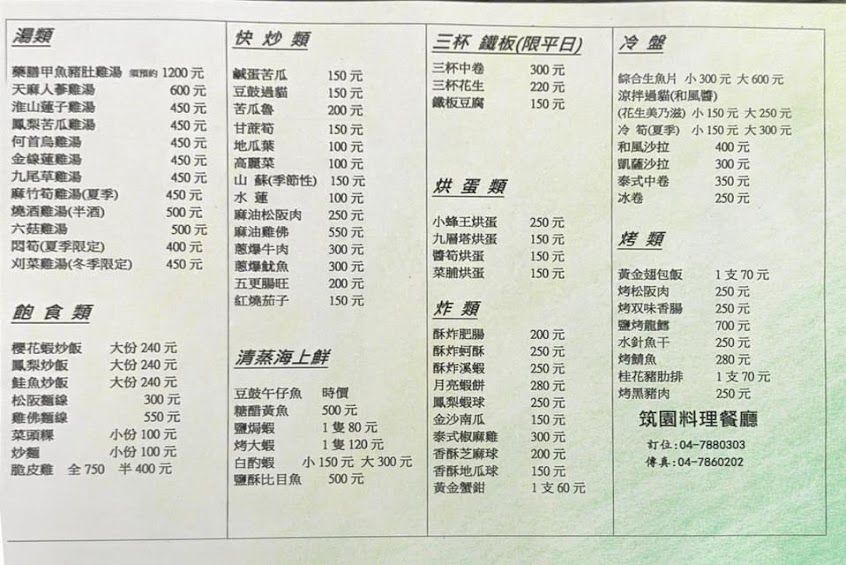 湯類
藥膳甲魚豬肚雞湯 須預約 1200 元
天麻人蔘雞湯 600 元
淮山蓮子雞湯 450 元
鳳梨苦瓜雞湯 450 元
何首烏雞湯 450 元
金線蓮雞湯 450 元
九尾草雞湯 450 元
麻竹筍雞湯(夏季) 450 元
燒酒雞湯(半酒) 500 元
六菇雞湯 500 元
悶筍(夏季限定) 400 元
刈菜雞湯(冬季限定) 450 元
飽食類
櫻花蝦炒飯 大份 240 元
鳳梨炒飯 大份 240 元
鮭魚炒飯 大份 240 元
松阪麵線 300 元
雞佛麵線 550 元
菜頭粿 小份 100 元
炒麵 小份 100 元
脆皮雞 全 750 半 400 元
快炒類
鹹蛋苦瓜 150 元
豆鼓過貓 150 元
苦瓜魯 200 元
甘蔗筍 150 元
地瓜葉 100 元
高麗菜 100 元
山 蘇(季節性) 150 元
水 蓮 100 元
麻油松阪肉 250 元
麻油雞佛 550 元
蔥爆牛肉 300 元
蔥爆魷魚 300 元
五更腸旺 200 元
紅燒茄子 150 元
清蒸海上鮮
豆鼓午仔魚 時價
糖醋黃魚 500 元
鹽焗蝦 1 隻 80 元
烤大蝦 1 隻 120 元
白酌蝦 小 150 元 大 300 元
鹽酥比目魚 500 元
三杯 鐵板(限平日)
三杯中卷 300 元
三杯花生 220 元
鐵板豆腐 150 元
烘蛋類
小蜂王烘蛋 250 元
九層塔烘蛋 150 元
醬筍烘蛋 150 元
菜脯烘蛋 150 元
炸類
酥炸肥腸 200 元
酥炸蚵酥 250 元
酥炸溪蝦 250 元
月亮蝦餅 280 元
鳳梨蝦球 250 元
金沙南瓜 150 元
泰式椒麻雞 300 元
香酥芝麻球 200 元
香酥地瓜球 150 元
黃金蟹鉗 1 支 60 元
冷盤
綜合生魚片 小 300 元 大 600 元
涼拌過貓(和風醬)
(花生美乃滋) 小 150 元 大 250 元
冷 筍(夏季) 小 150 元 大 300 元
和風沙拉 400 元
凱薩沙拉 300 元
泰式中卷 350 元
冰卷 250 元
烤類
黃金翅包飯 1 支 70 元
烤松阪肉 250 元
烤双味香腸 250 元
鹽烤龍鱈 700 元
水針魚干 250 元
烤鯖魚 280 元
桂花豬肋排 1 支 70 元
烤黑豬肉 250 元
筑園料理餐廳
訂位:04-7880303
傳真:04-7860202